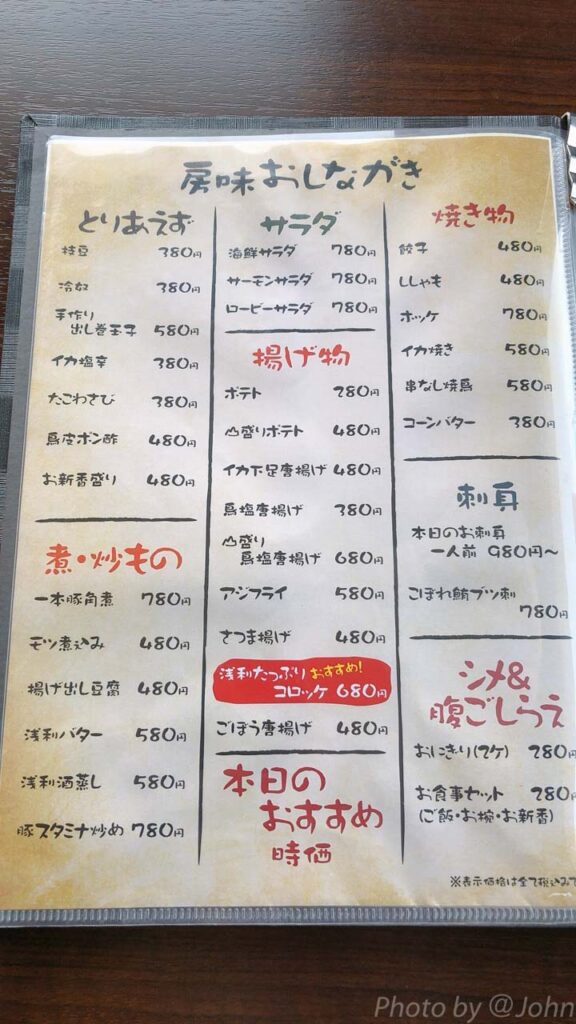 房味おしながき
とりあえず
枝豆 380円
冷奴 380円
手作り
出し巻玉子 580円
イカ塩辛 380円
たこわさび 380円
鳥皮ポン酢 480円
お新香盛り 480円
煮・炒もの
一本豚角煮 780円
モツ煮込み 480円
揚げ出し豆腐 480円
浅利バター 580円
浅利酒蒸し 580円
豚スタミナ炒め 780円
サラダ
海鮮サラダ 780円
サーモンサラダ 780円
ロービーサラダ 780円
揚げ物
ポテト 280円
山盛りポテト 480円
イカ下足唐揚げ 480円
鳥塩唐揚げ 380円
山盛り
鳥塩唐揚げ 680円
アジフライ 580円
さつま揚げ 480円
浅利たっぷり おすすめ!
コロッケ 680円
ごぼう唐揚げ 480円
本日の
おすすめ
時価
焼き物
餃子 480円
ししゃも 480円
ホッケ 780円
イカ焼き 580円
串なし焼鳥 580円
コーンバター 380円
刺身
本日のお刺身
一人前 980円〜
こぼれ鮪ブツ刺
780円
シメ&
腹ごしらえ
おにぎり(2ケ) 280円
お食事セット 280円
(ご飯・お椀・お新香)
※表示価格は全て税込みで
Photo by @John